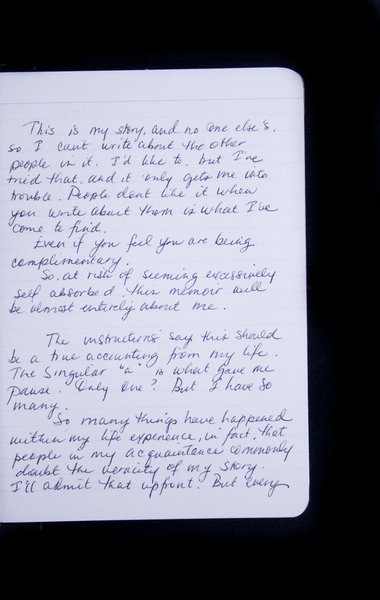 This is my story, and no one else's,
so I can't write about the other
people in it. I'd like to, but I've
tried that, and it only gets me into
trouble. People dont like it when
you write about them is what I've
come to find.
Even if you feel you are being
complimentary.
So, at risk of seeming excessively
self absorbed, this memoir will
be almost entirely about me.
The instructions say this should
be a true accounting from my life.
The singular "a" is what gave me
pause. Only one? But I have so
many.
So many things have happened
within my life experience, in fact, that
people in my acquaintance commonly
doubt the veracity of my story.
I'll admit that upfront. But every